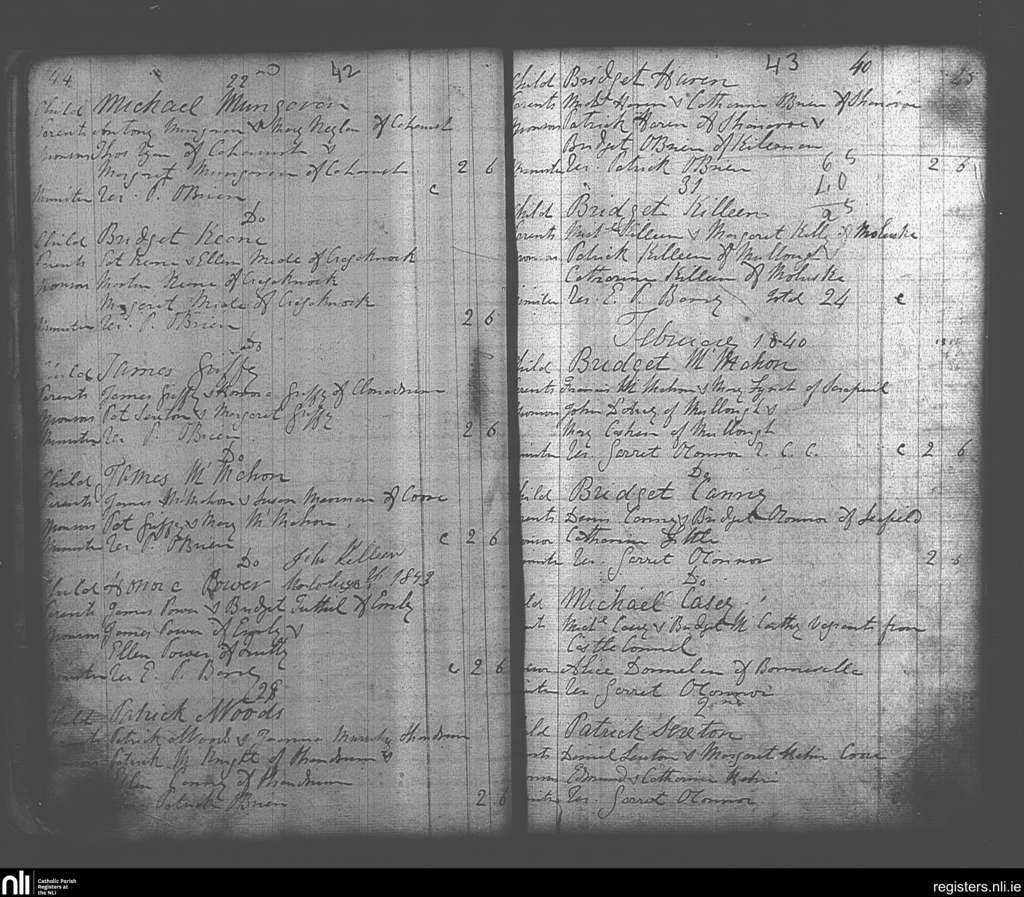 44
42
22nd
Child Michael Mungovan
Parents Antony Mungovan & Mary Neylon of
Sponsors Thos Ryan of &
Margret Mungovan of 2 6
Minister Rev. P. OBrien c
Do
Child Bridget Keane
Parents Pat Keane & Ellen Meade of Cragaknock
Sponsors Martin Keane of Cragaknock
Margret Meade of Cragaknock
Minister Rev. P. OBrien 2 6
Do
Child James Griffy
Parents James Griffy & Honora Griffy of Clonadrum
Sponsors Pat Sexton & Margaret Griffy
Minister Rev P. OBrien 2 6
Do
Child James McMahon
Parents James McMahon & Susan of Coore
Sponsors Pat Griffy & Mary McMahon
Minister Rev P. OBrien c 2 6
Do John Killeen
Child Honora Power 1843
Parents James Power & Bridget of Emly
Sponsors James Power of Emly &
Ellen Power of
Minister Rev E. P. Barry c 2 6
28
Child Patrick Woods
Parents Patrick Woods &
Sponsors Patrick McKnight of &
Ellen Canny of
Patrick OBrien 2 6
43 40 45
Child Bridget Haren
Parents Michl Haren & Catharine OBrien of
Sponsors Patrick Haren of &
Bridget OBrien of
Minister Rev. Patrick OBrien 2 6
65
40
25
31
Child Bridget Killeen
Parents Michl Killeen & Margaret Kelly of Moluska
Sponsors Patrick Killeen of Mullough &
Catharine Killeen of Moluska
Minister Rev. E. P. Barry total 24 c
February 1840
Child Bridget McMahon
Parents Francis McMahon & Mary Lynch of
Sponsors John of Mullough &
Mary of Mullough
Minister Rev. Garret OConnor R. C. C. c 2 6
Do
Child Bridget Canny
Parents Denis Canny & Bridget OConnor of Seafield
Sponsor Catharine
Minister Rev. Garret OConnor 2 6
Do
Child Michael Casey
Parents Michl Casey & Bridget McCarthy Vagrants from
Castle Connell
Sponsor Alice Donnelan of
Minister Rev Garret OConnor
2nd
Child Patrick Sexton
Parents Daniel Sexton & Margaret Coore
Sponsors Edmund & Catharine
Minister Rev. Garret OConnor
nli
Catholic Parish
Registers at
the NLI
registers.nli.ie